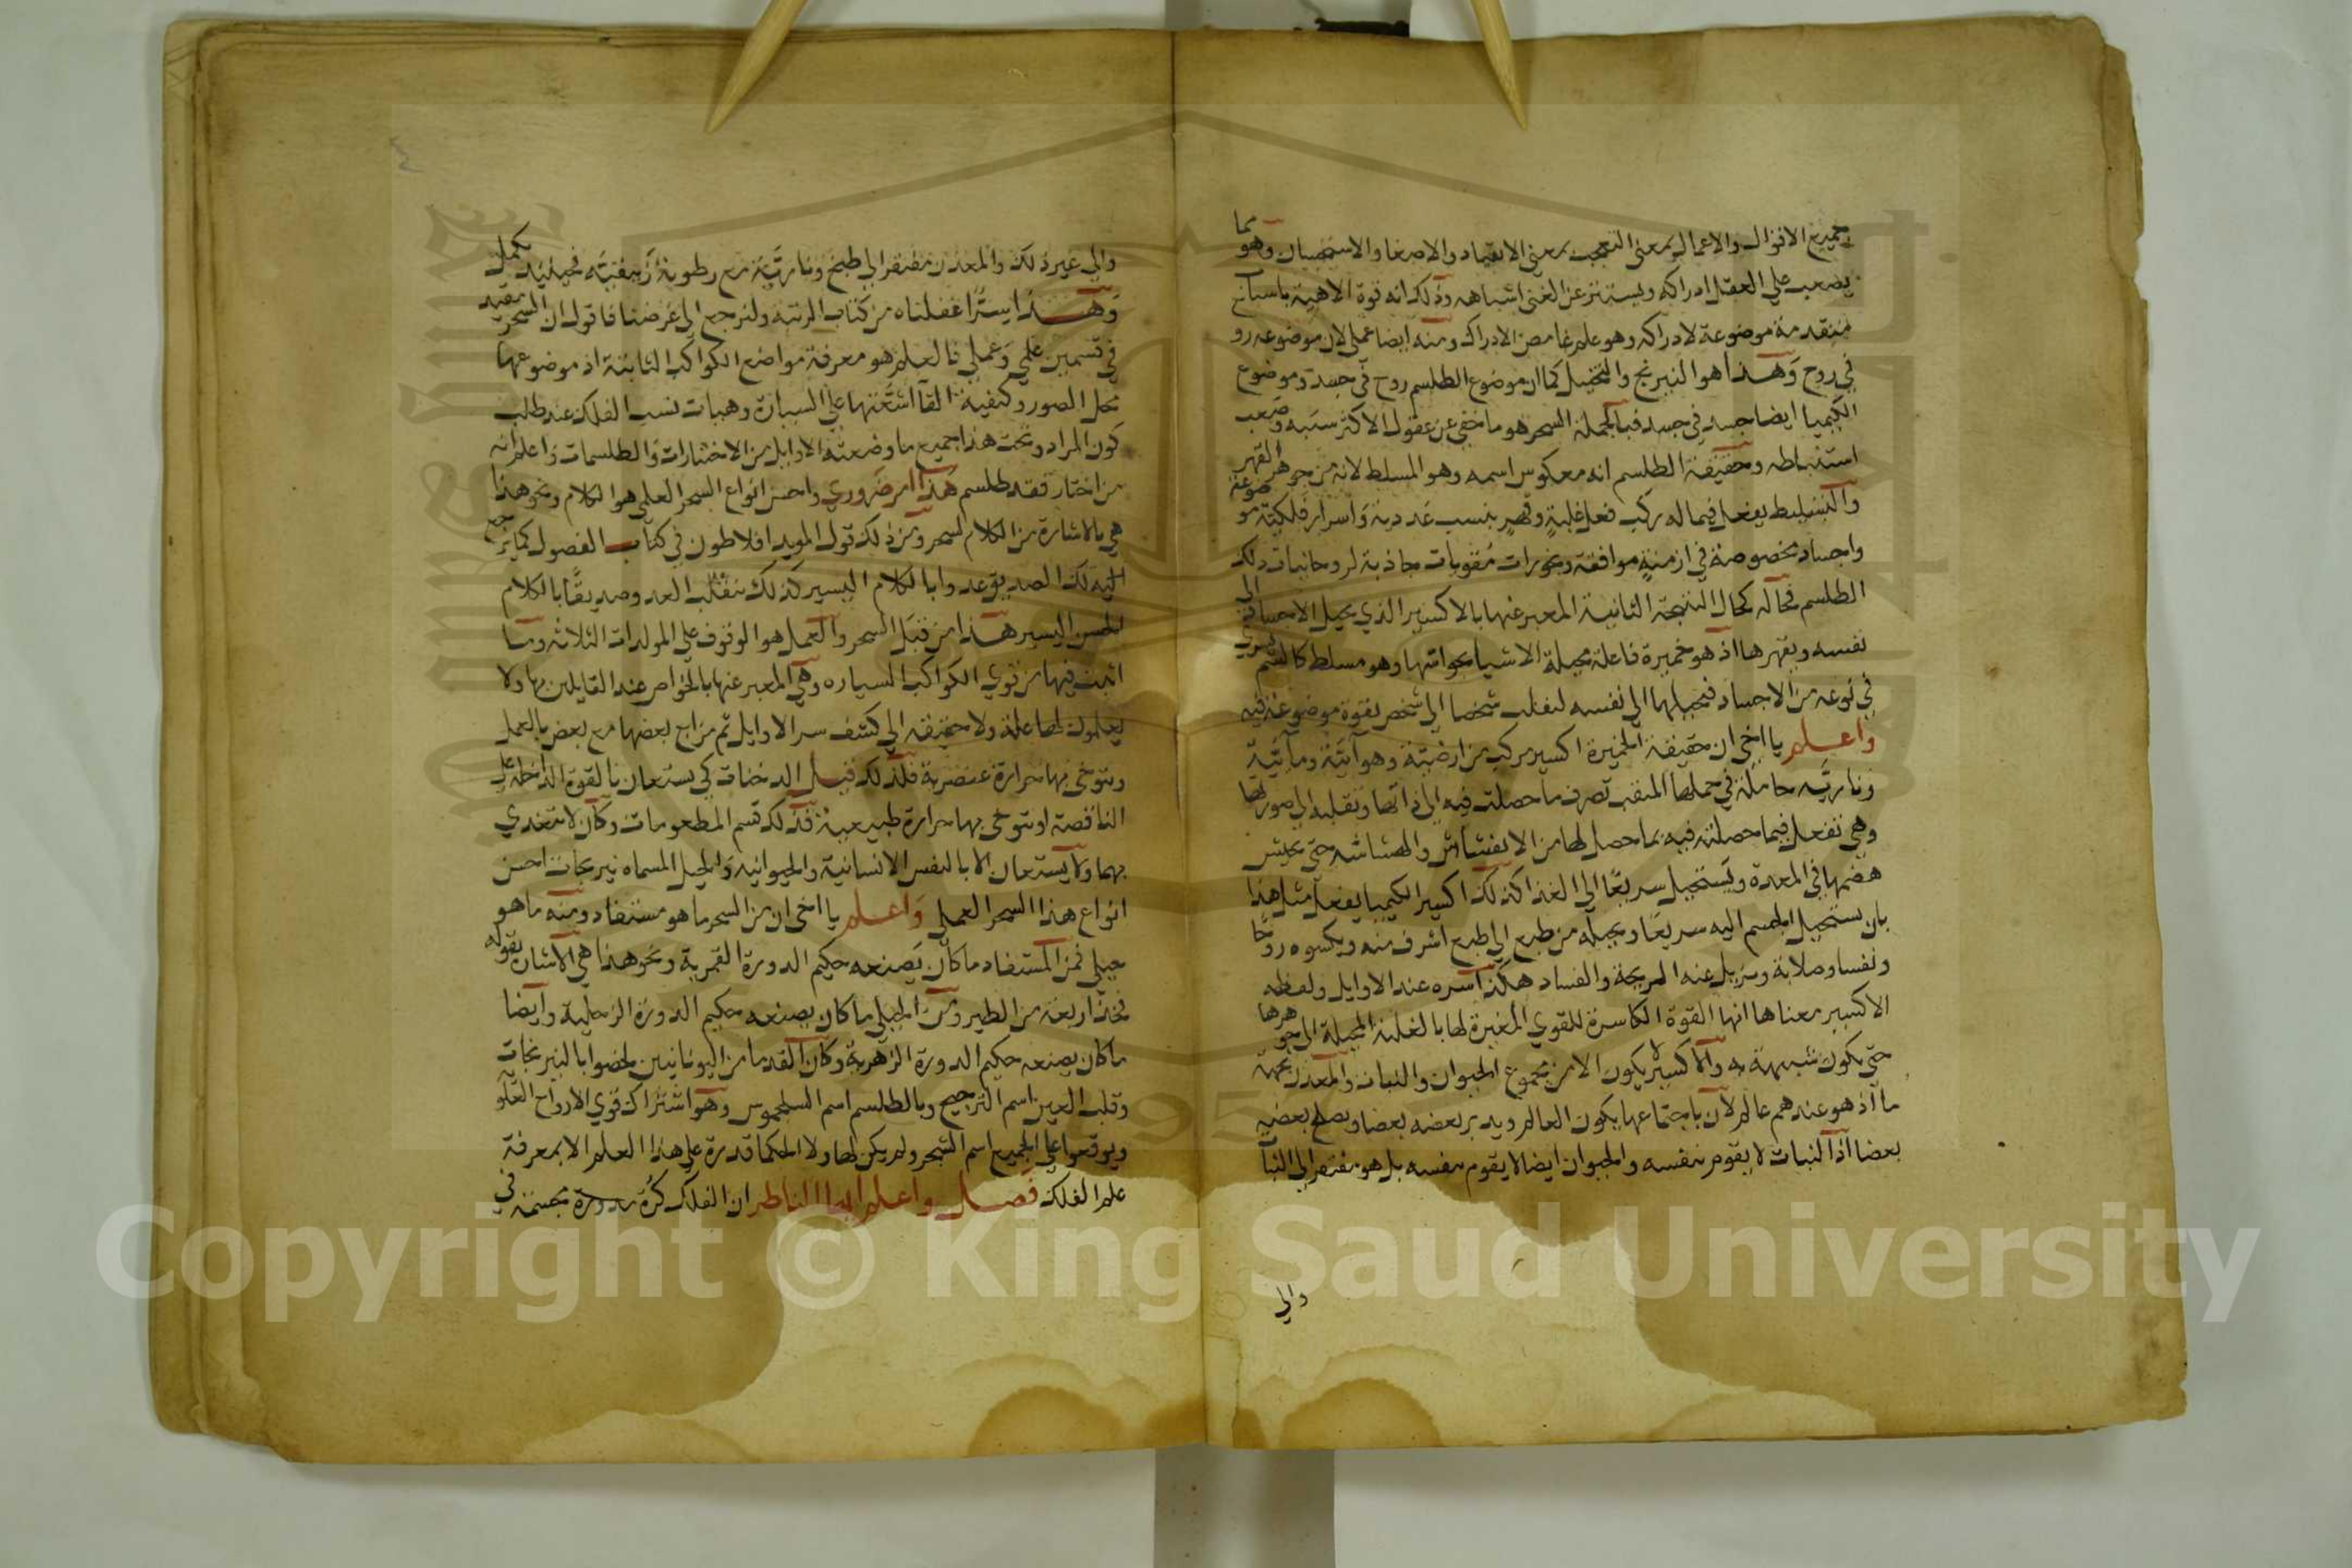 جميع الاقوال والاعمال بمعنى التعجب بمعنى الانقياد والاصغا والاستحسان وهو مما
يصعب على العقل ادراكه ويستتر عن الغبي اشباهه وذلك انه قوة الاهية باسباب
متقدمة موضوعة لادراكه وهو علم غامض الادراك ومنه ايضا عملي لان موضوعه روح
في روح وهذا هو النيرنج والتخييل كما ان موضوع الطلسم روح في جسد وموضوع
الكيميا ايضا جسد في جسد فبالجملة السحر هو ما خفي عن عقول الاكثر سببه وصعب
استنباطه وحقيقة الطلسم انه معكوس اسمه وهو المسلط لانه من جوهر القهر
والتسليط يفعل فيما له ركب فعل غلبة وقهر بنسب عددية واسرار فلكية موضوعة
واجساد مخصوصة في ازمنة موافقة وبخورات مقويات جاذبة لروحانيات ذلك
الطلسم فحاله كحال النتيجة الثانية المعبر عنها بالاكسير الذي يحيل الاجساد الى
نفسه ويقهرها اذ هو خميرة فاعلة محيلة الاشيا بخواتها وهو مسلط كالسم يسري
في نوعه من الاجساد فيحيلها الى نفسه لنقلب شخصا الى شخص بقوة موضوعة فيه
واعلم يا اخي ان حقيقة الخميرة اكسير مركب من ارضية وهوآئية ومآئية
وناريه حاملة في حملها المنقب تصرف ما حصلت فيه الى ذاتها وتقلبه الى صورتها
وهي تفعل فيما حصلت فيه بما حصل لها من الانفشاش والهشاشه حتى يحسن
هضمها في المعدة ويستحيل سريعا الى الغذا كذلك اكسير الكيميا يفعل مثل هذا
بان يستحيل الجسم اليه سريعا ويحيله من طبع الى طبع اشرف منه ويكسوه روحا
ونفسا وصلابة ويزيل عنه المريحة والفساد هكذا سره عند الاوايل ولفظه
الاكسير معناها انها القوة الكاسرة للقوي المغيرة لها بالغلبة المحيلة الى جوهرها
حتى يكون شبيهة به والاكسير لا يكون الا من مجموع الحيوان والنبات والمعدن بجهة
ما اذ هو عندهم عالم لان باجتماعها يكون العالم ويدبر بعضه بعضا ويصلح بعضه
بعضا اذ النبات لا يقوم بنفسه والحيوان ايضا لا يقوم بنفسه بل هو مفتقر الى النبا
والي
والى غير ذلك والمعدن مفتقر الى طبخ وناريه مع رطوبة زيبقيه فحينئذ يكمل
وهذا سترا اغفلناه من كتاب الرتبه ولنرجع الى غرضنا فاقول ان السحر
في قسمين علمي وعملي فالعلم هو معرفة مواضع الكواكب الثابتة اذ موضوعها
محل الصور وكيفية القا اشعتها على السيارة وهيات نسب الفلك عند طلب
كون المراد وتحت هذا جميع ما وضعته الاوايل من الاختيارات والطلسمات واعلم انه
من اختار فقد طلسم هذا امر ضروري واحسن انواع السحر العلمي هو الكلام ونحو هذا
هي بالاشارة من الكلام لسحر ومن ذلك قول المويد افلاطون في كتاب الفصول كما يرجع
اليه لك الصديق عدوا بالكلام اليسير كذلك ينقلب العدو صديقا بالكلام
الحسن اليسير هذا من قبل السحر والعمل هو الوقوف على المولدات الثلاثه وما
اثبت فيها من قوي الكواكب السياره وهي المعبر عنها بالخواص عند القايلين بها ولا
يعلمون لها علة ولا حقيقه الى كشف سر الاوايل ثم مزاج بعضها مع بعض بالعمل
ويتوخى بها حرارة عنصرية فلذلك قبل الدخنات كي يستعان بالقوة الداخله على
الناقصة او يتوخى بها حرارة طبيعية فذلك قسم المطعومات وكان لا يتغدي
بهما ولا يستعان الا بالنفس الانسانية والحيوانيه والحيل المسماه نيرنجات احسن
انواع هذا السحر العملي واعلم يا اخي ان من السحر ما هو مستفاد ومنه ما هو
حيلي فمن المستفاد ما كان يصنعه حكيم الدورة القمرية ونحو هذا هي الاشارة بقوله
فخذ اربعة من الطير ومن الحيلي ما كان يصنعه حكيم الدورة الزحلية وايضا
ما كان يصنعه حكيم الدورة الزهرية وكان القدما من اليونانيين يخصوا بالنيرنجات
وقلب العين اسم الترجيح وبالطلسم اسم السلجموس وهو اشتراك قوي الارواح العلوية
ويوقعوا على الجميع اسم السحر ولم يكن لها ولا الحكما قدرة على هذا العلم الا بمعرفة
علم الفلك فصل واعلم ايها الناظر ان الفلك كرة مدورة مجسمة في
Copyright © King Saud University
1957